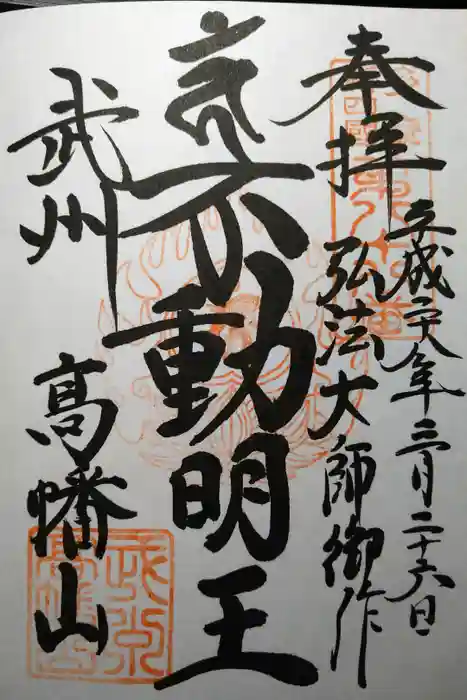 奉拝
平成二十八年三月二十六日
弘法大師御作
不動明王
武州
高幡山